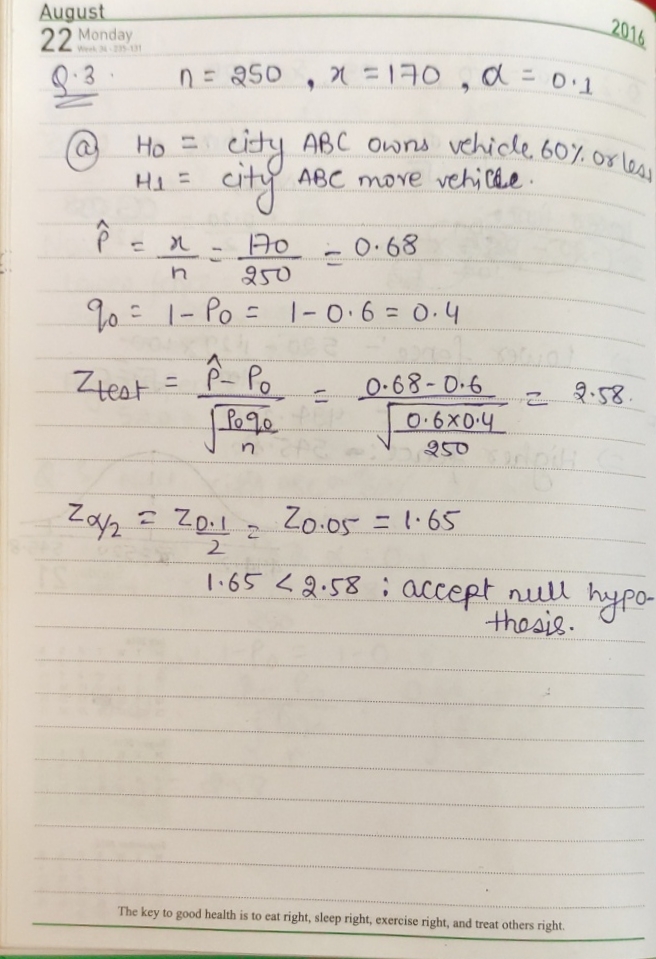 August
22 Monday
2016
Q.3. n = 250 , x = 170 , α = 0.1
(a) H0 = city ABC owns vehicle 60% or less
H1 = city ABC more vehicle.
p̂ = x/n = 170/250 = 0.68
q0 = 1 - P0 = 1 - 0.6 = 0.4
Ztest = (p̂ - P0)/√(P0q0/n) = (0.68 - 0.6)/√(0.6×0.4/250) = 2.58.
Zα/2 = Z0.1/2 = Z0.05 = 1.65
1.65 < 2.58 : accept null hypo-
thesis.
The key to good health is to eat right, sleep right, exercise right, and treat others right.